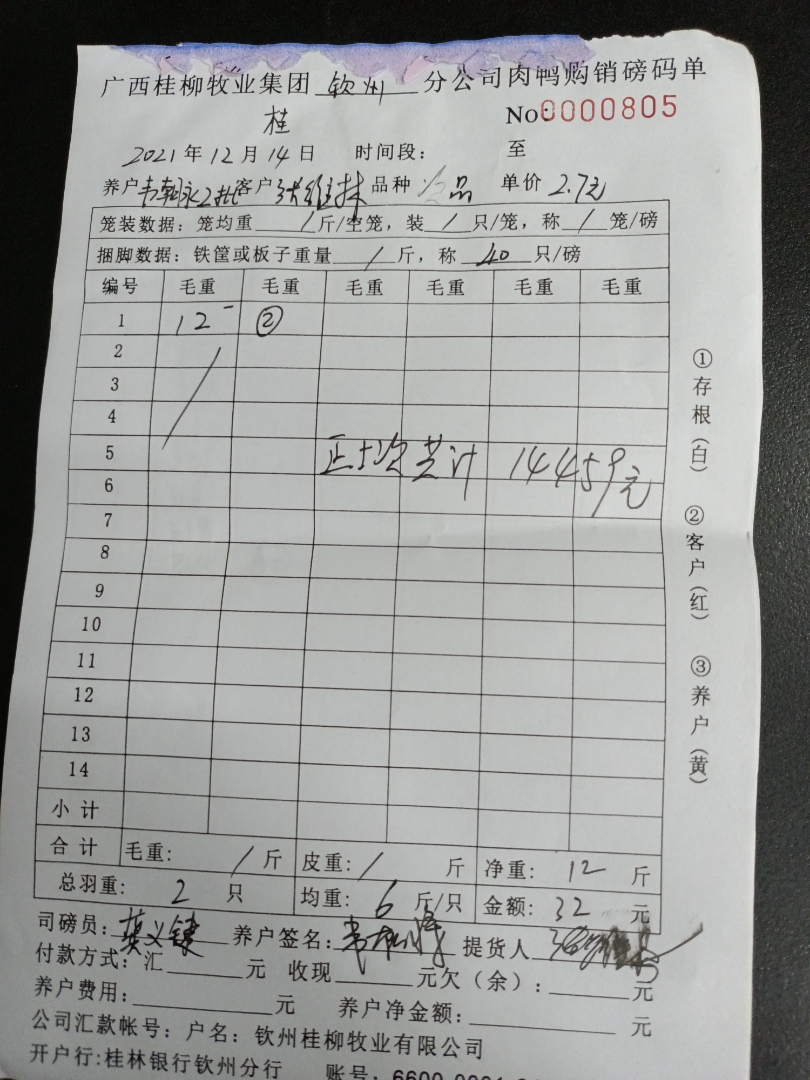 广西桂柳牧业集团 钦州 分公司肉鸭购销磅码单
桂 No:0000805
2021年12月14日 时间段: 至
养户 韦朝永 客户 张维林 品种 品 单价 2.7元
笼装数据: 笼均重 / 斤/空笼, 装 / 只/笼, 称 / 笼/磅
捆脚数据: 铁筐或板子重量 / 斤, 称 40 只/磅
编号 毛重 毛重 毛重 毛重 毛重 毛重
1 12 ②
2
3
4
5 共计 14459元
6
7
8
9
10
11
12
13
14
小计
合计 毛重: / 斤 皮重: / 斤 净重: 12 斤
总羽重: 2 只 均重: 6 斤/只 金额: 32 元
司磅员: 养户签名: 提货人
付款方式: 汇 元 收现 元欠(余): 元
养户费用: 元 养户净金额: 元
公司汇款帐号: 户名: 钦州桂柳牧业有限公司
开户行:桂林银行钦州分行 账号: 6600 0001
①存根(白) ②客户(红) ③养户(黄)